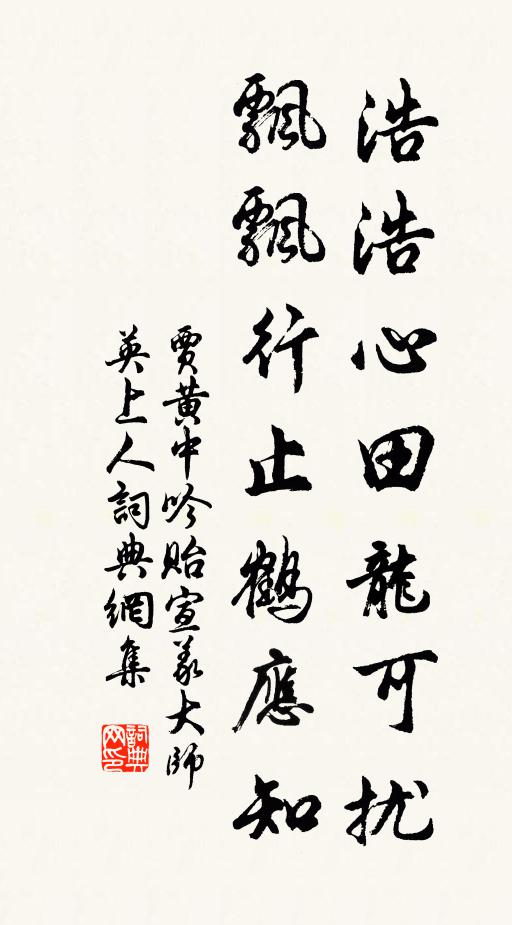 浩浩心田龍可扰
飄飄行止鶴應知
賈黃中吟貽宣義大師
英上人詞典網集
詞典网印